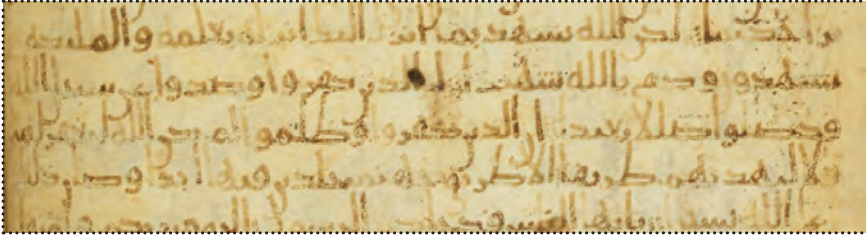 يزا حكيما لكن الله يشهد بما انزل اليك انزله بعلمه والملئكة
يشهدون وكفى بالله شهيدا ان الذين كفروا وصدوا عن سبيل الله
قد ضلوا ضللا بعيدا ان الذين كفروا وظلموا لم يكن الله ليغفر لهم
ولا ليهديهم طريقا الا طريق جهنم خلدين فيها ابدا وكان ذلك
على الله يسيرا يايها الناس قد جاكم الرسول بالحق من ربكم فامنوا